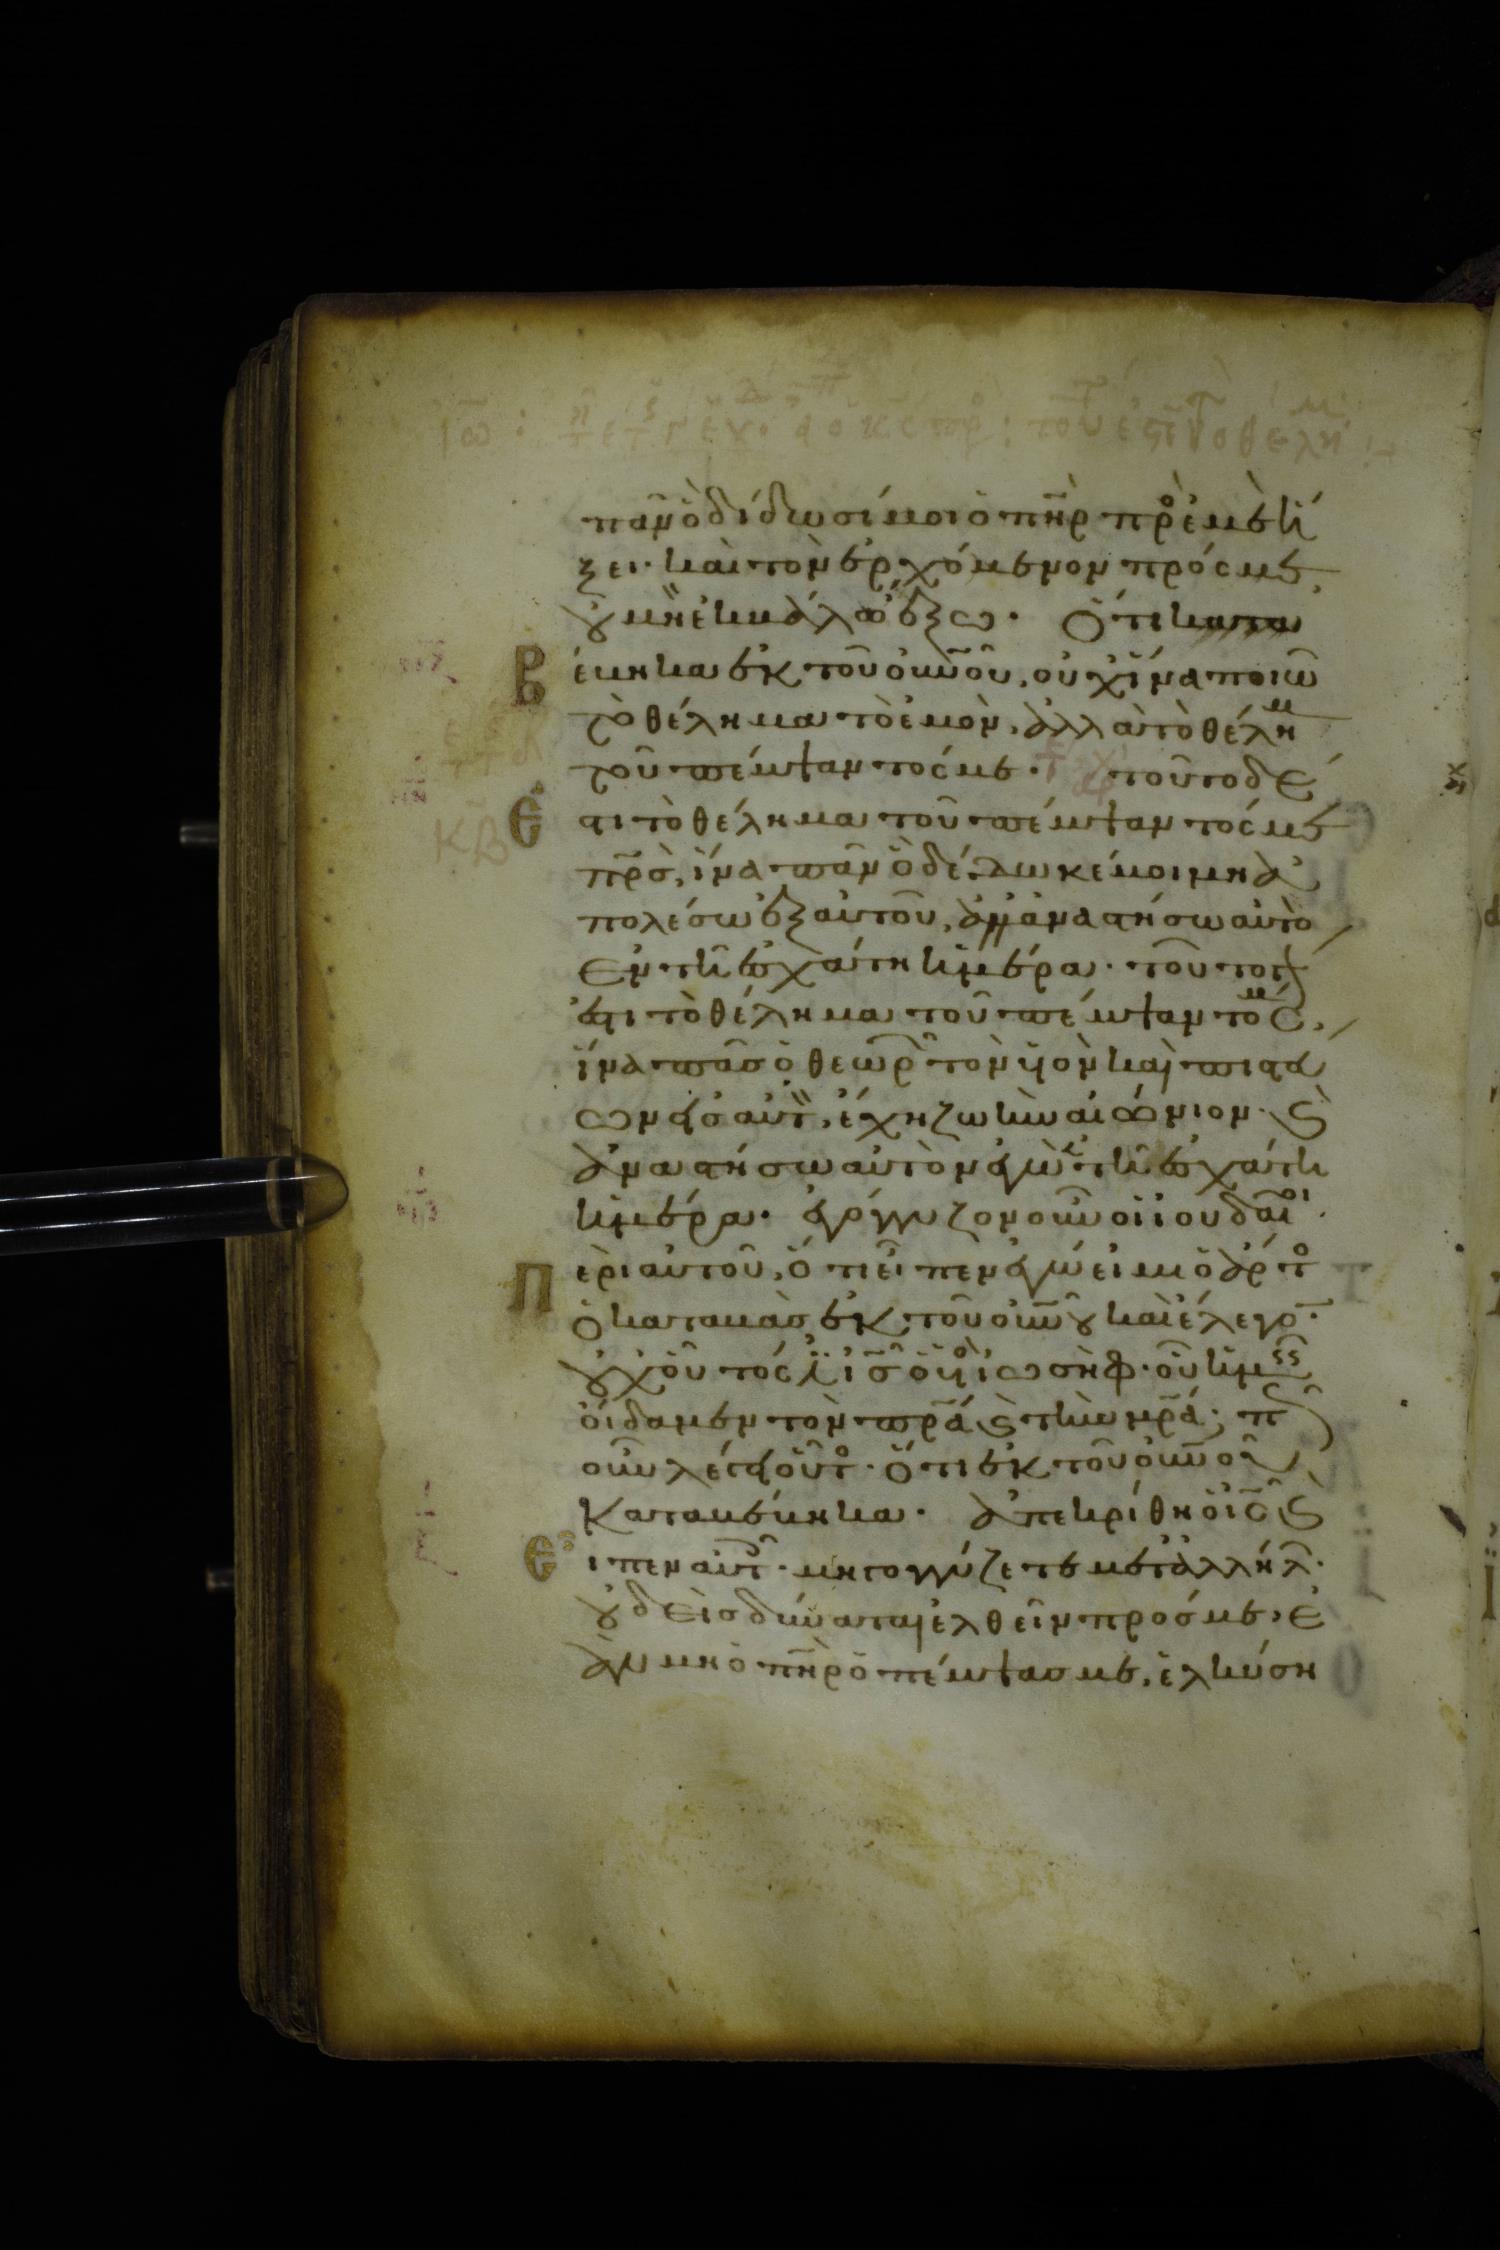 πᾶν ὃ δίδωσί μοι ὁ π̅η̅ρ πρὸ ἐμὲ ἥ
ξει· καὶ τὸν ἐρχόμενον πρός με
οὐ μὴ ἐκβάλω ἔξω· Ὅτι κατα
βέβηκα ἐκ τοῦ οὐ̅ν̅οῦ, οὐχ ἵνα ποιῶ
τὸ θέλημα τὸ ἐμὸν, ἀλλὰ τὸ θέλημ
τοῦ πέμψαντός με· τοῦτο δέ
Ἐστι τὸ θέλημα τοῦ πέμψαντός με
π̅ρ̅σ̅, ἵνα πᾶν ὃ δέδωκέ μοι μὴ ἀ
πολέσω ἐξ αὐτοῦ, ἀλλὰ ἀναστήσω αὐτὸ
ἐν τῇ ἐσχάτη ἡμέρα· τοῦτο γ
ἐστι τὸ θέλημα τοῦ πέμψαντο με,
ἵνα πᾶσ ὁ θεωρῶ τὸν υἱὸν καὶ πιστεύ
ων εἰσ αὐτ, ἔχη ζωὴν αἰώνιον· ϗ
ἀναστήσω αὐτὸν ἐγὼ ἐ τῇ ἐσχάτη
ἡμέρα· ἐγόγγυζον οὖν οἱ ἰουδαῖοι
Περὶ αὐτοῦ, ὅτι εἶπεν ἐγώ εἰμι ὁ ἄρτο
ὁ καταβὰσ ἐκ τοῦ οὐ̅ν̅οῦ καὶ ἔλεγο·
οὐχ οὗτός ἐ ἰ̅σ̅ ὁ υἱὸ ἰωσὴφ· οὗ ἡμεῖσ
οἴδαμεν τὸν π̅ρ̅α̅ ϗ τὴν μ̅ρ̅α̅· π
οὖν λέγει οὗτο· ὅτι ἐκ τοῦ οὐ̅ν̅οῦ
καταβέβηκα· ἀπεκρίθη ὁ ἰ̅σ̅ ϗ
Εἶπεν αὐτοῖ· μὴ γογγύζετε μετ ἀλλήλ·
οὐδεὶσ δύναται ἐλθεῖν πρόσ με, ἐ
ὰν μὴ ὁ π̅η̅ρ ὁ πέμψασ με, ἑλκύση